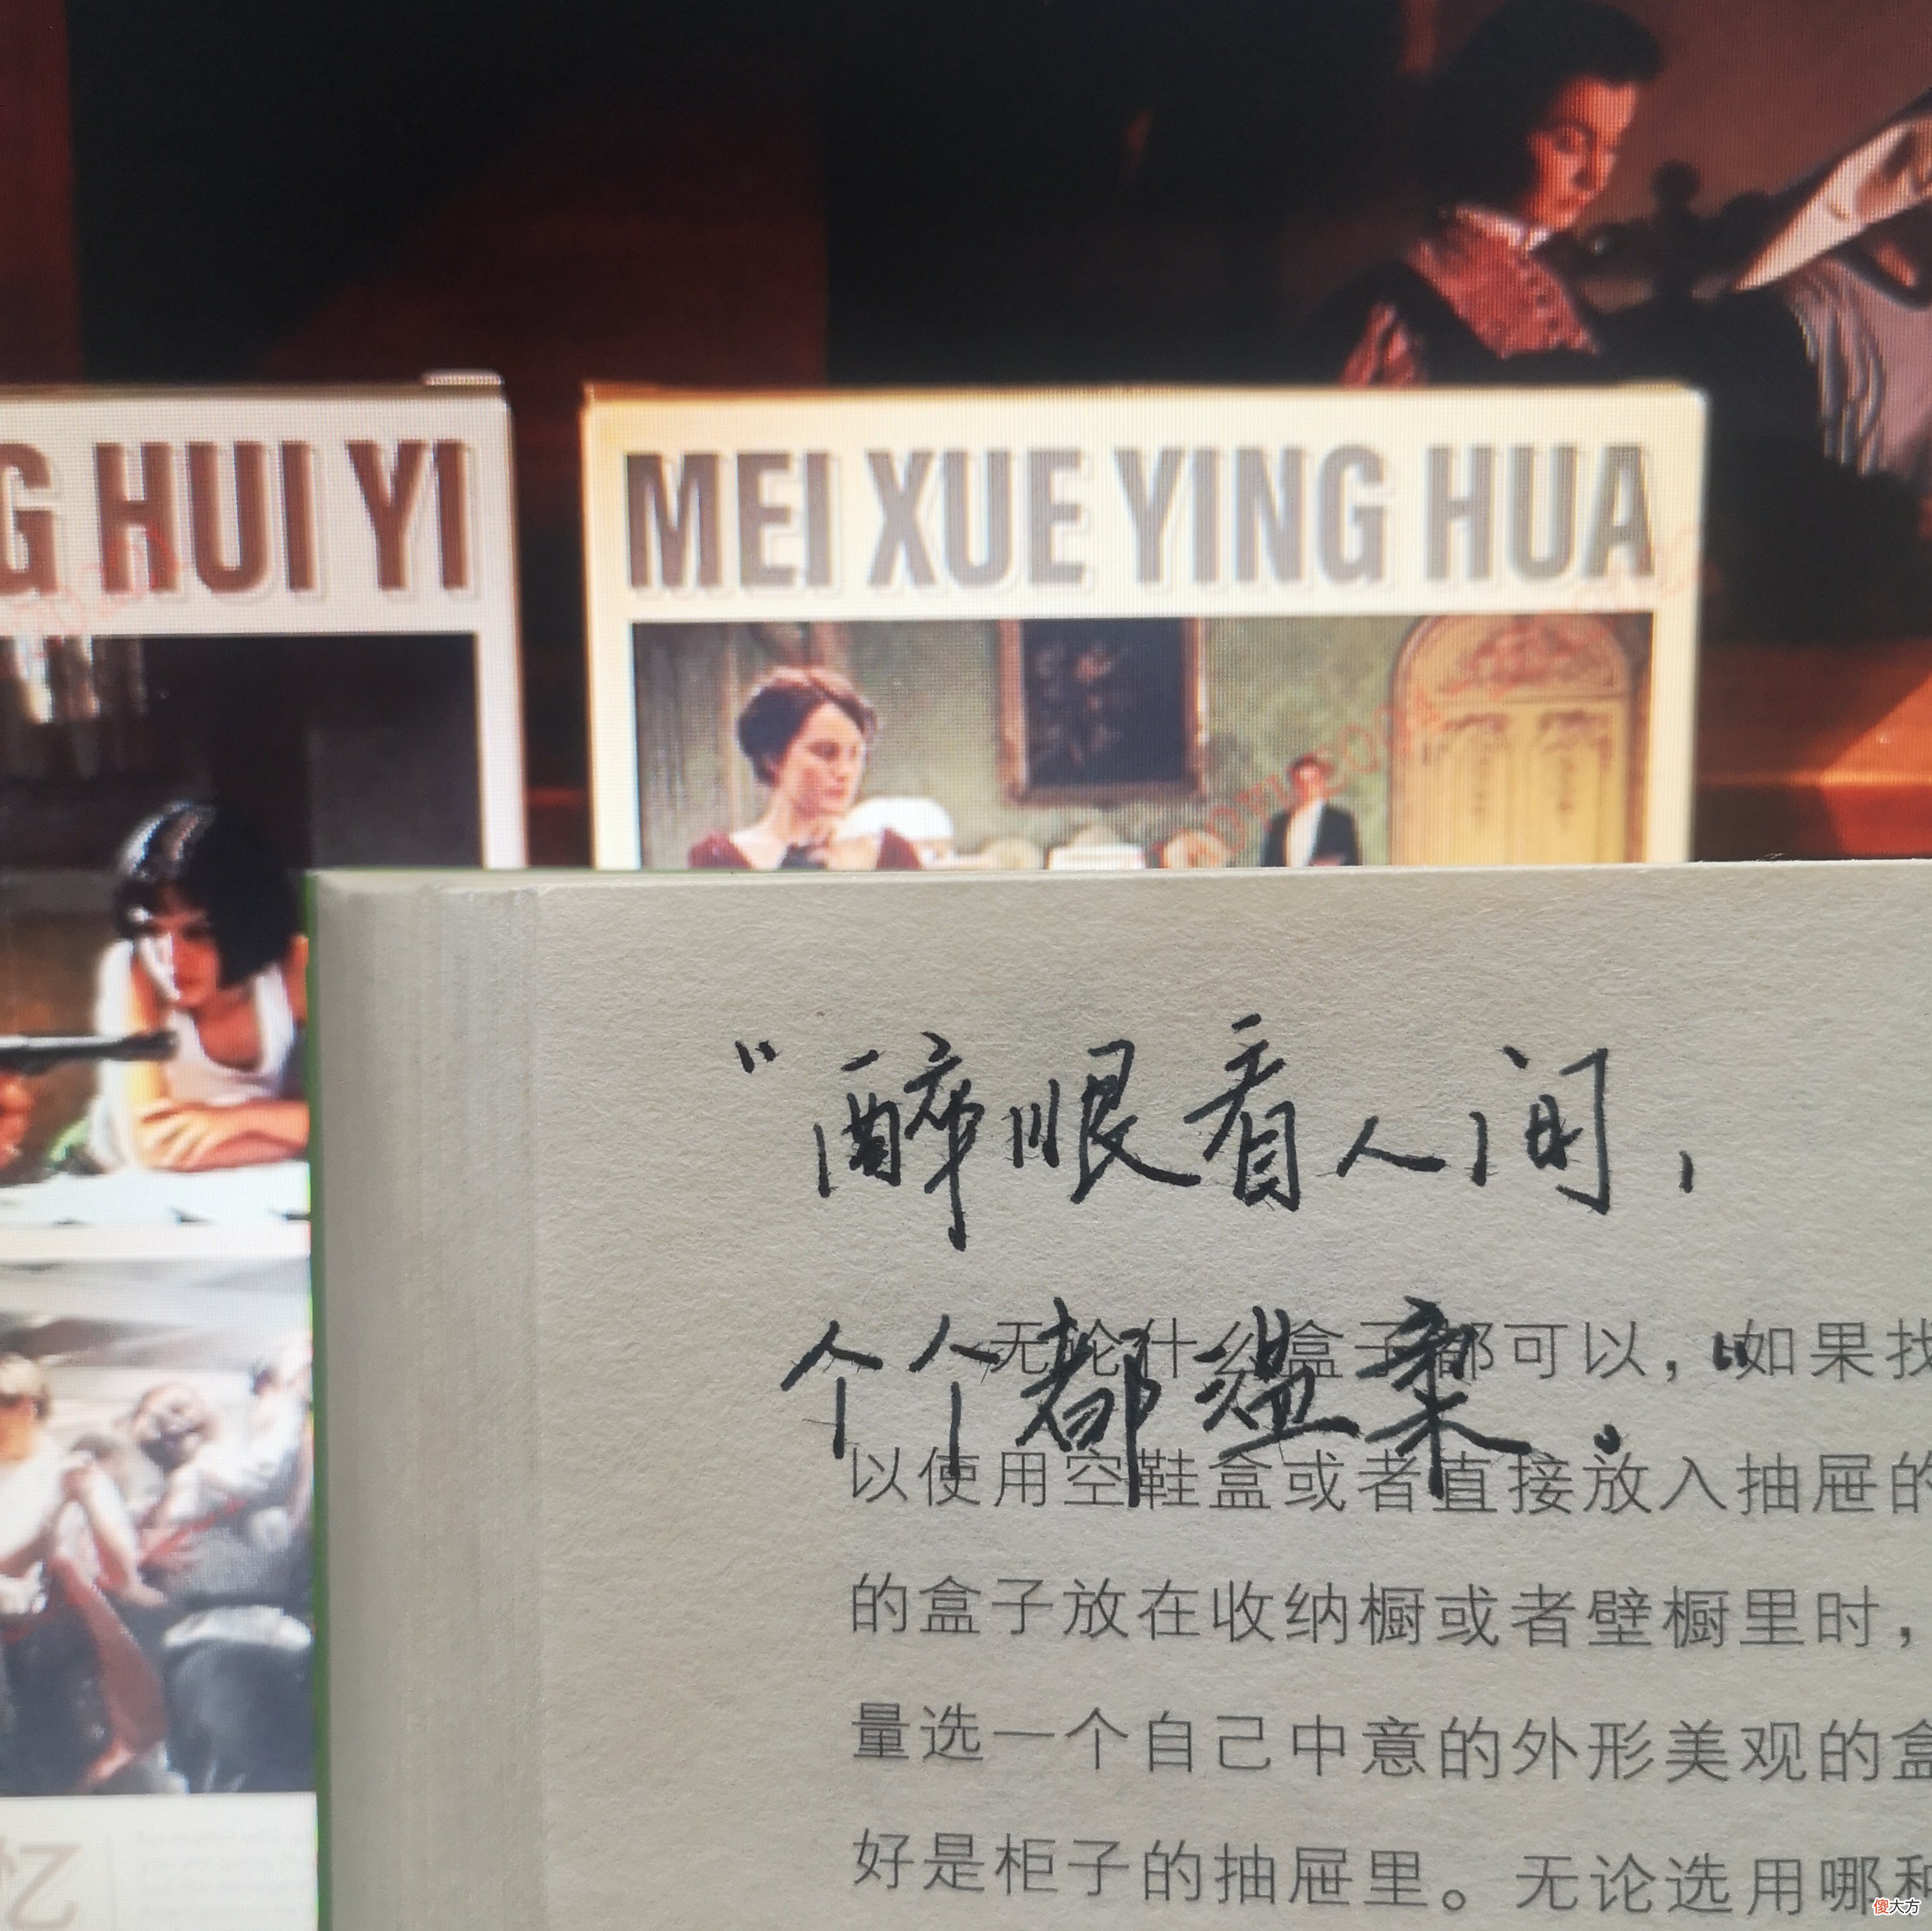 G HUI YI
MEI XUE YING HUA
“醉眼看人间，
个个都温柔。”
无论什么盒子都可以，如果找
以使用空鞋盒或者直接放入抽屉的
的盒子放在收纳橱或者壁橱里时，
量选一个自己中意的外形美观的盒
好是柜子的抽屉里。无论选用哪种
傻大方